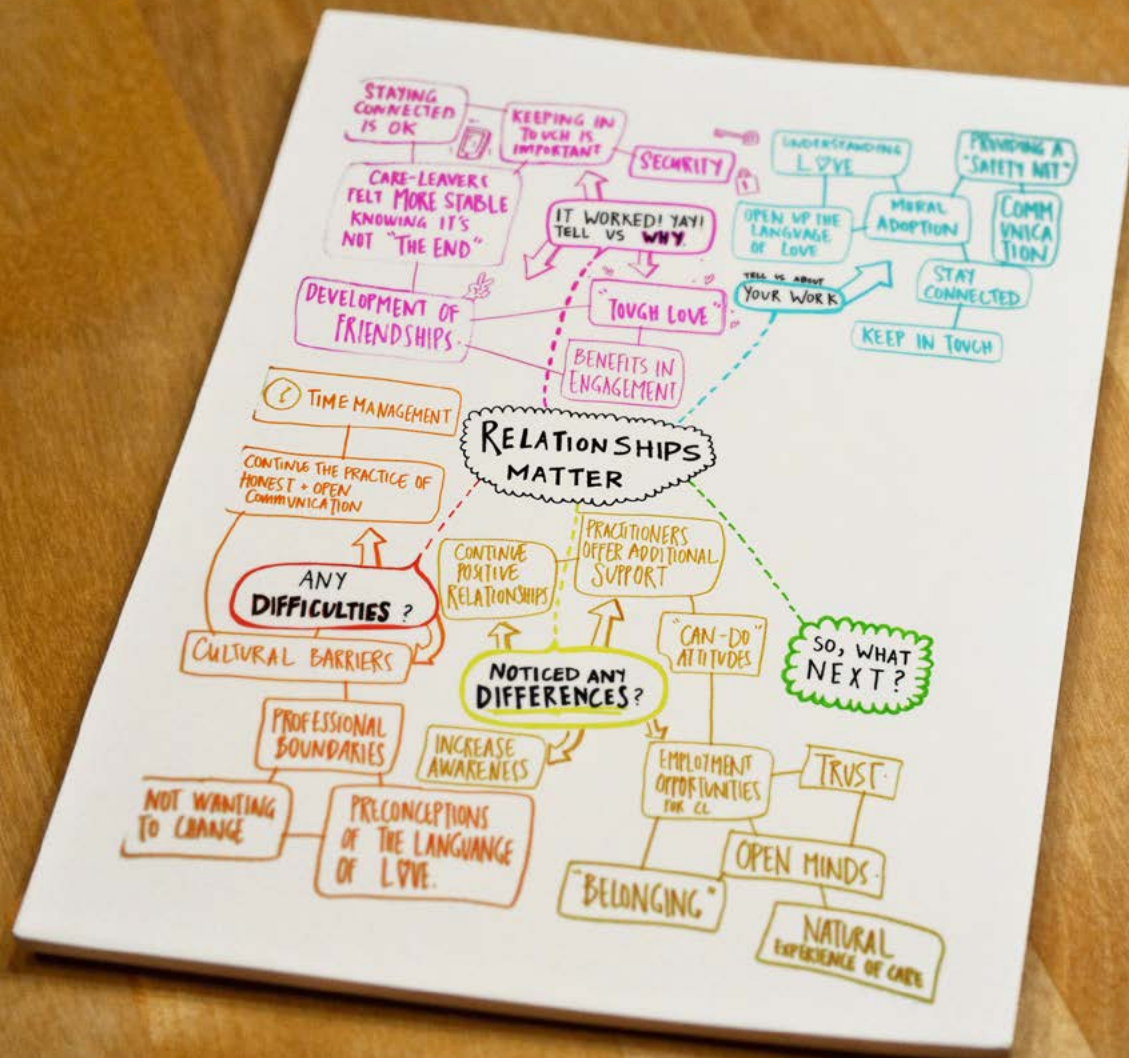 STAYING
CONNECTED
IS OK
KEEPING IN
TOUCH IS
IMPORTANT
SECURITY
CARE-LEAVERS
FELT MORE STABLE
KNOWING IT'S
NOT "THE END"
IT WORKED! YAY!
TELL US WHY.
DEVELOPMENT OF
FRIENDSHIPS.
"TOUGH LOVE"
BENEFITS IN
ENGAGEMENT
UNDERSTANDING
LOVE
PROVIDING A
"SAFETY NET"
OPEN UP THE
LANGUAGE
OF LOVE
MORAL
ADOPTION
COMM
UNICA
TION
TELL US ABOUT
YOUR WORK
STAY
CONNECTED
KEEP IN TOUCH
RELATIONSHIPS
MATTER
TIME MANAGEMENT
CONTINUE THE PRACTICE OF
HONEST + OPEN
COMMUNICATION
ANY
DIFFICULTIES?
CULTURAL BARRIERS
PROFESSIONAL
BOUNDARIES
NOT WANTING
TO CHANGE
PRECONCEPTIONS
OF THE LANGUANGE
OF LOVE.
CONTINUE
POSITIVE
RELATIONSHIPS
PRACTITIONERS
OFFER ADDITIONAL
SUPPORT
"CAN-DO"
ATTITUDES
NOTICED ANY
DIFFERENCES?
INCREASE
AWARENESS
EMPLOYMENT
OPPORTUNITIES
FOR CL
TRUST.
OPEN MINDS.
"BELONGING"
NATURAL
EXPERIENCE OF CARE
SO, WHAT
NEXT?